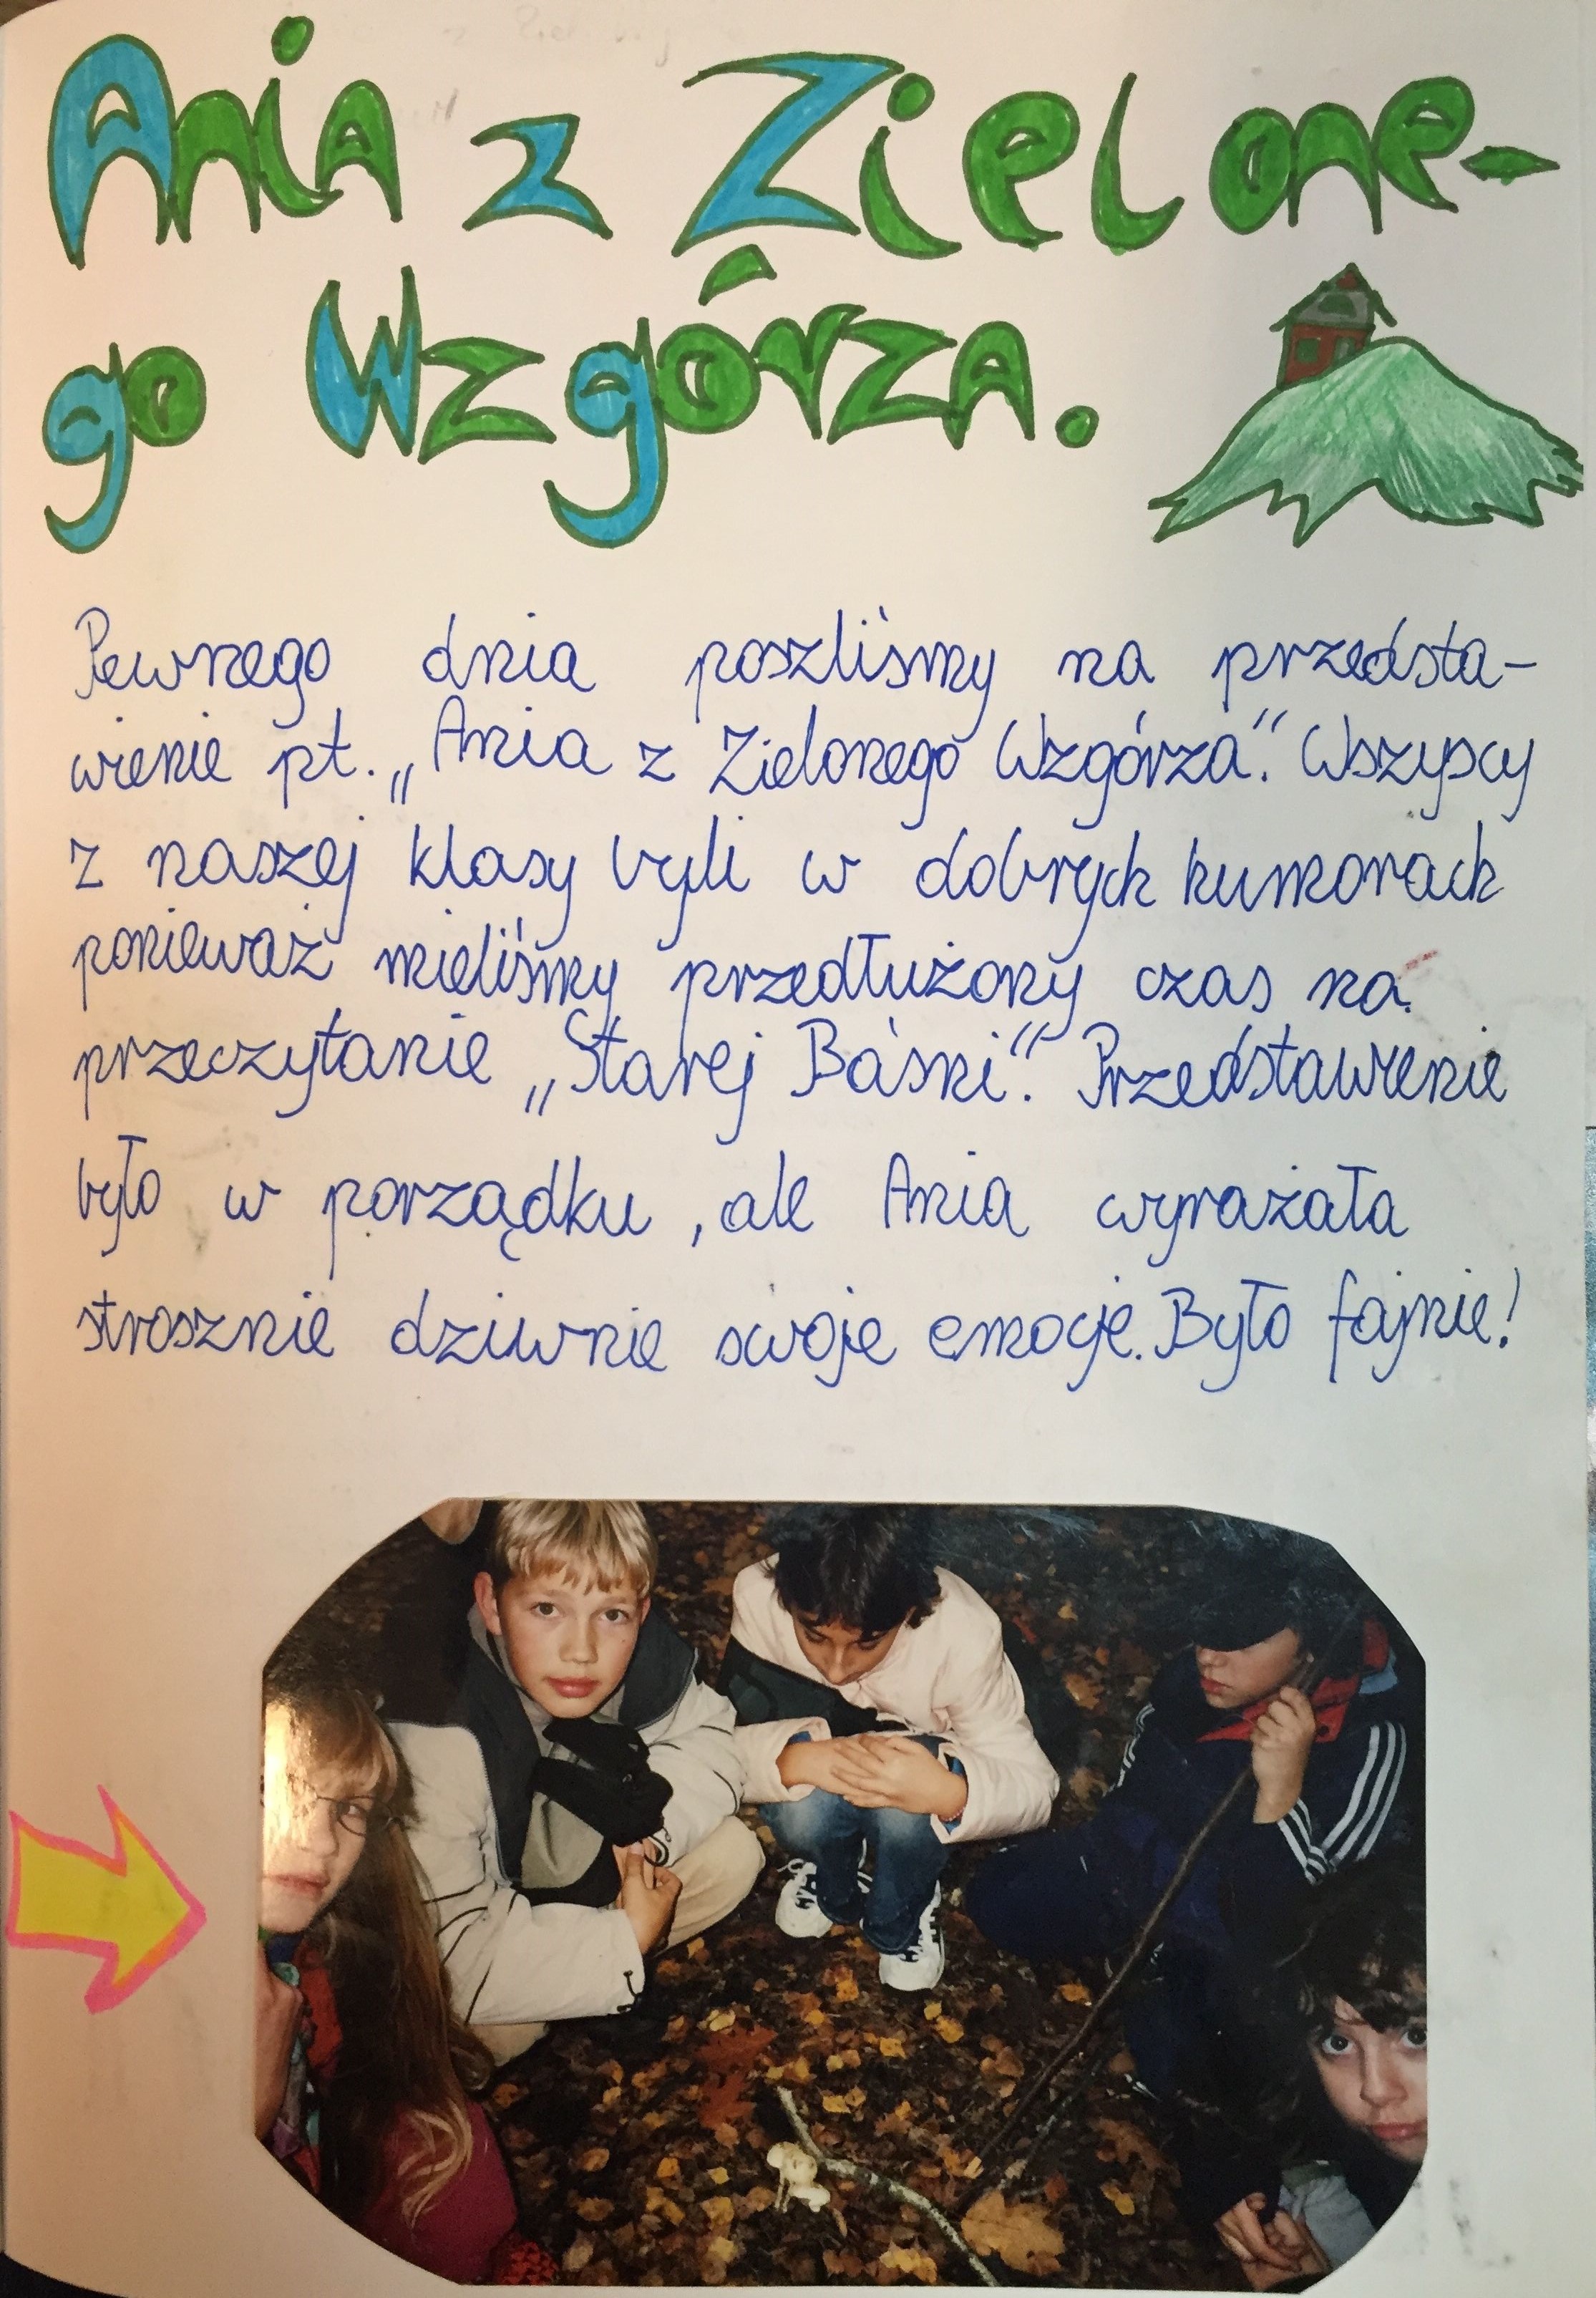 Ania z Zielone-
go Wzgórza.
Pewnego dnia poszliśmy na przedsta-
wienie pt. „Ania z Zielonego Wzgórza”. Wszyscy
z naszej klasy byli w dobrych humorach
ponieważ mieliśmy przedłużony czas na
przeczytanie „Starej Baśni”. Przedstawienie
było w porządku, ale Ania wyrażała
strosznie dziwnie swoje emocje. Było fajnie!